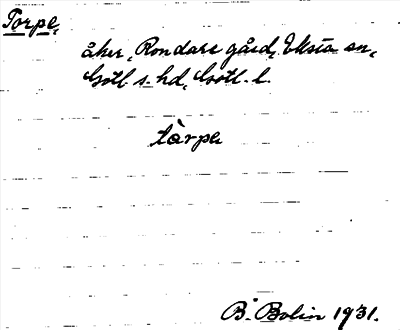 Torpe,
åker, Rondare gård, Eksta sn,
Gotl s. hd, Gotl. l.
tàrpe
B. Bolin 1931.